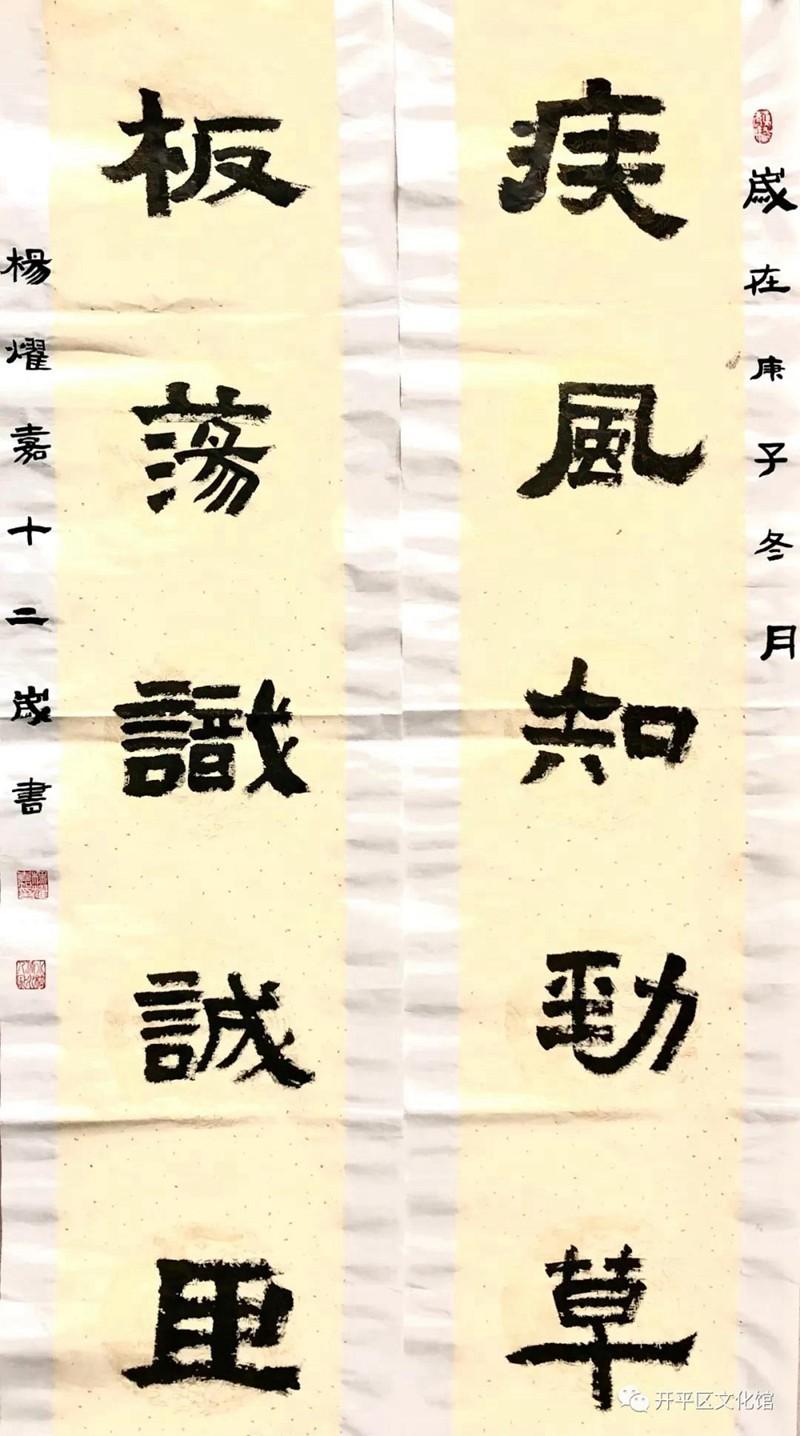 歲在庚子冬月
疾風知勁草
板蕩識誠臣
楊燿嘉十二歲書
开平区文化馆